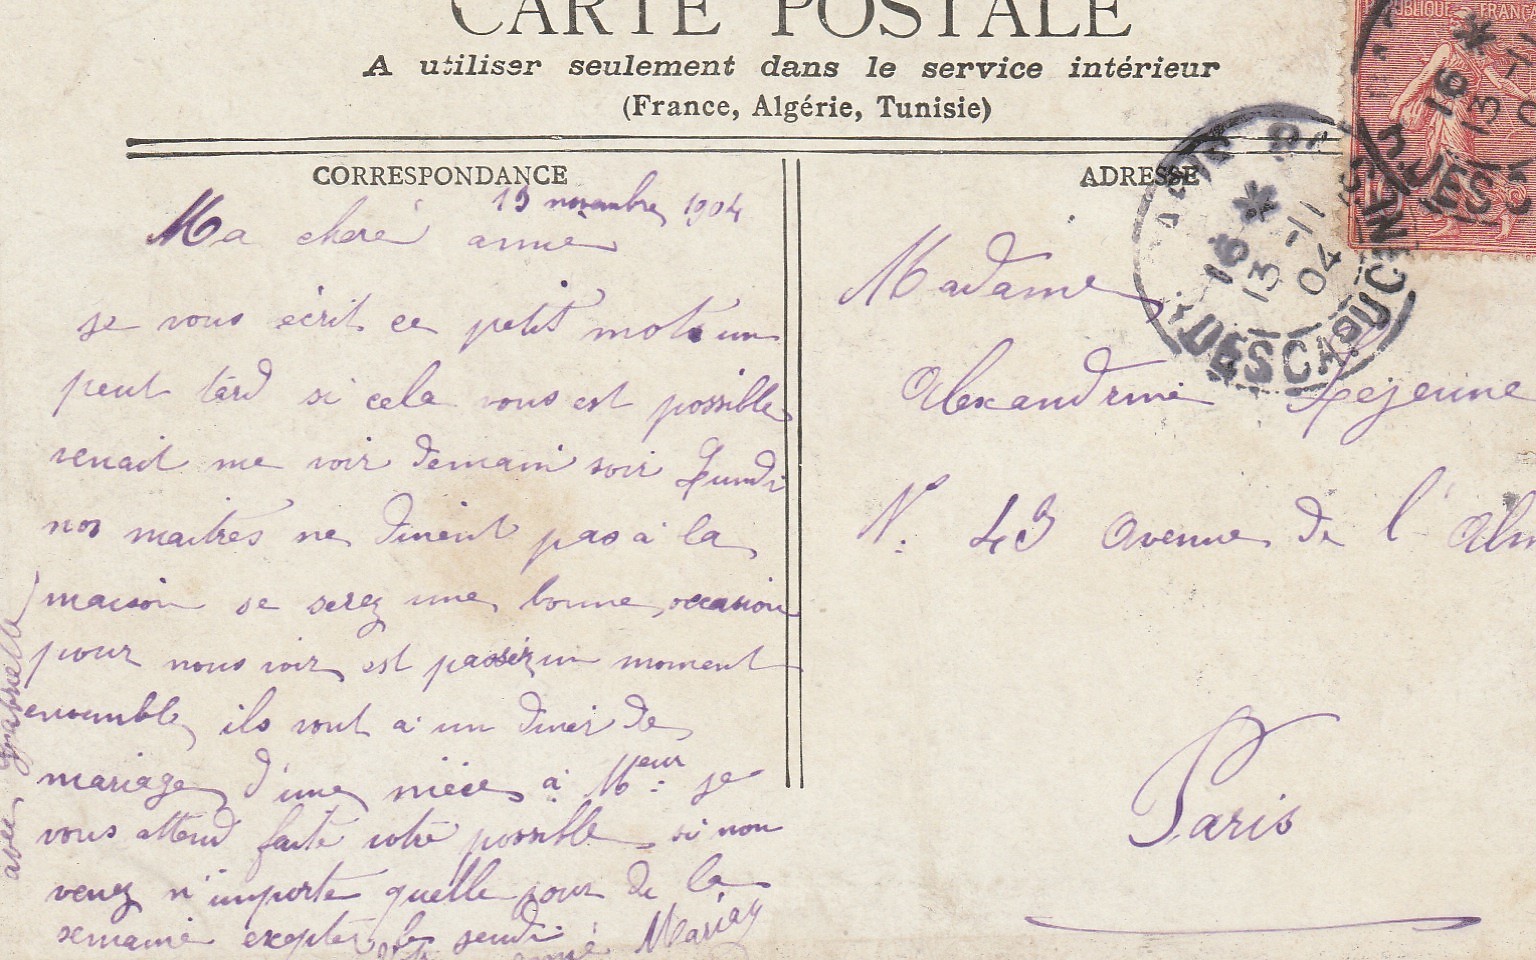 CARTE POSTALE
A utiliser seulement dans le service intérieur
(France, Algérie, Tunisie)
CORRESPONDANCE
13 novembre 1904
Ma chere amie
je vous écrit ce petit mot un
peut tard si cela vous est possible
venait me voir demain soir Lundi
nos maitres ne dinent pas à la
maison se serez une bonne occasion
pour nous voir est passer un moment
ensemble ils vont a un diner de
mariage d'une niéce a Meur je
vous attend faite votre possible si non
venez n'importe quelle jour de la
semaine exepter le jeudi
amie Maria
avec Gabrielle
ADRESSE
Madame
Alexandrine Lejeune
N° 43 Avenue de l'Alm
Paris
REPUBLIQUE FRANÇA
16
13 -11
04
PARIS 8
R. DES CAPUCINES
16
13 -11